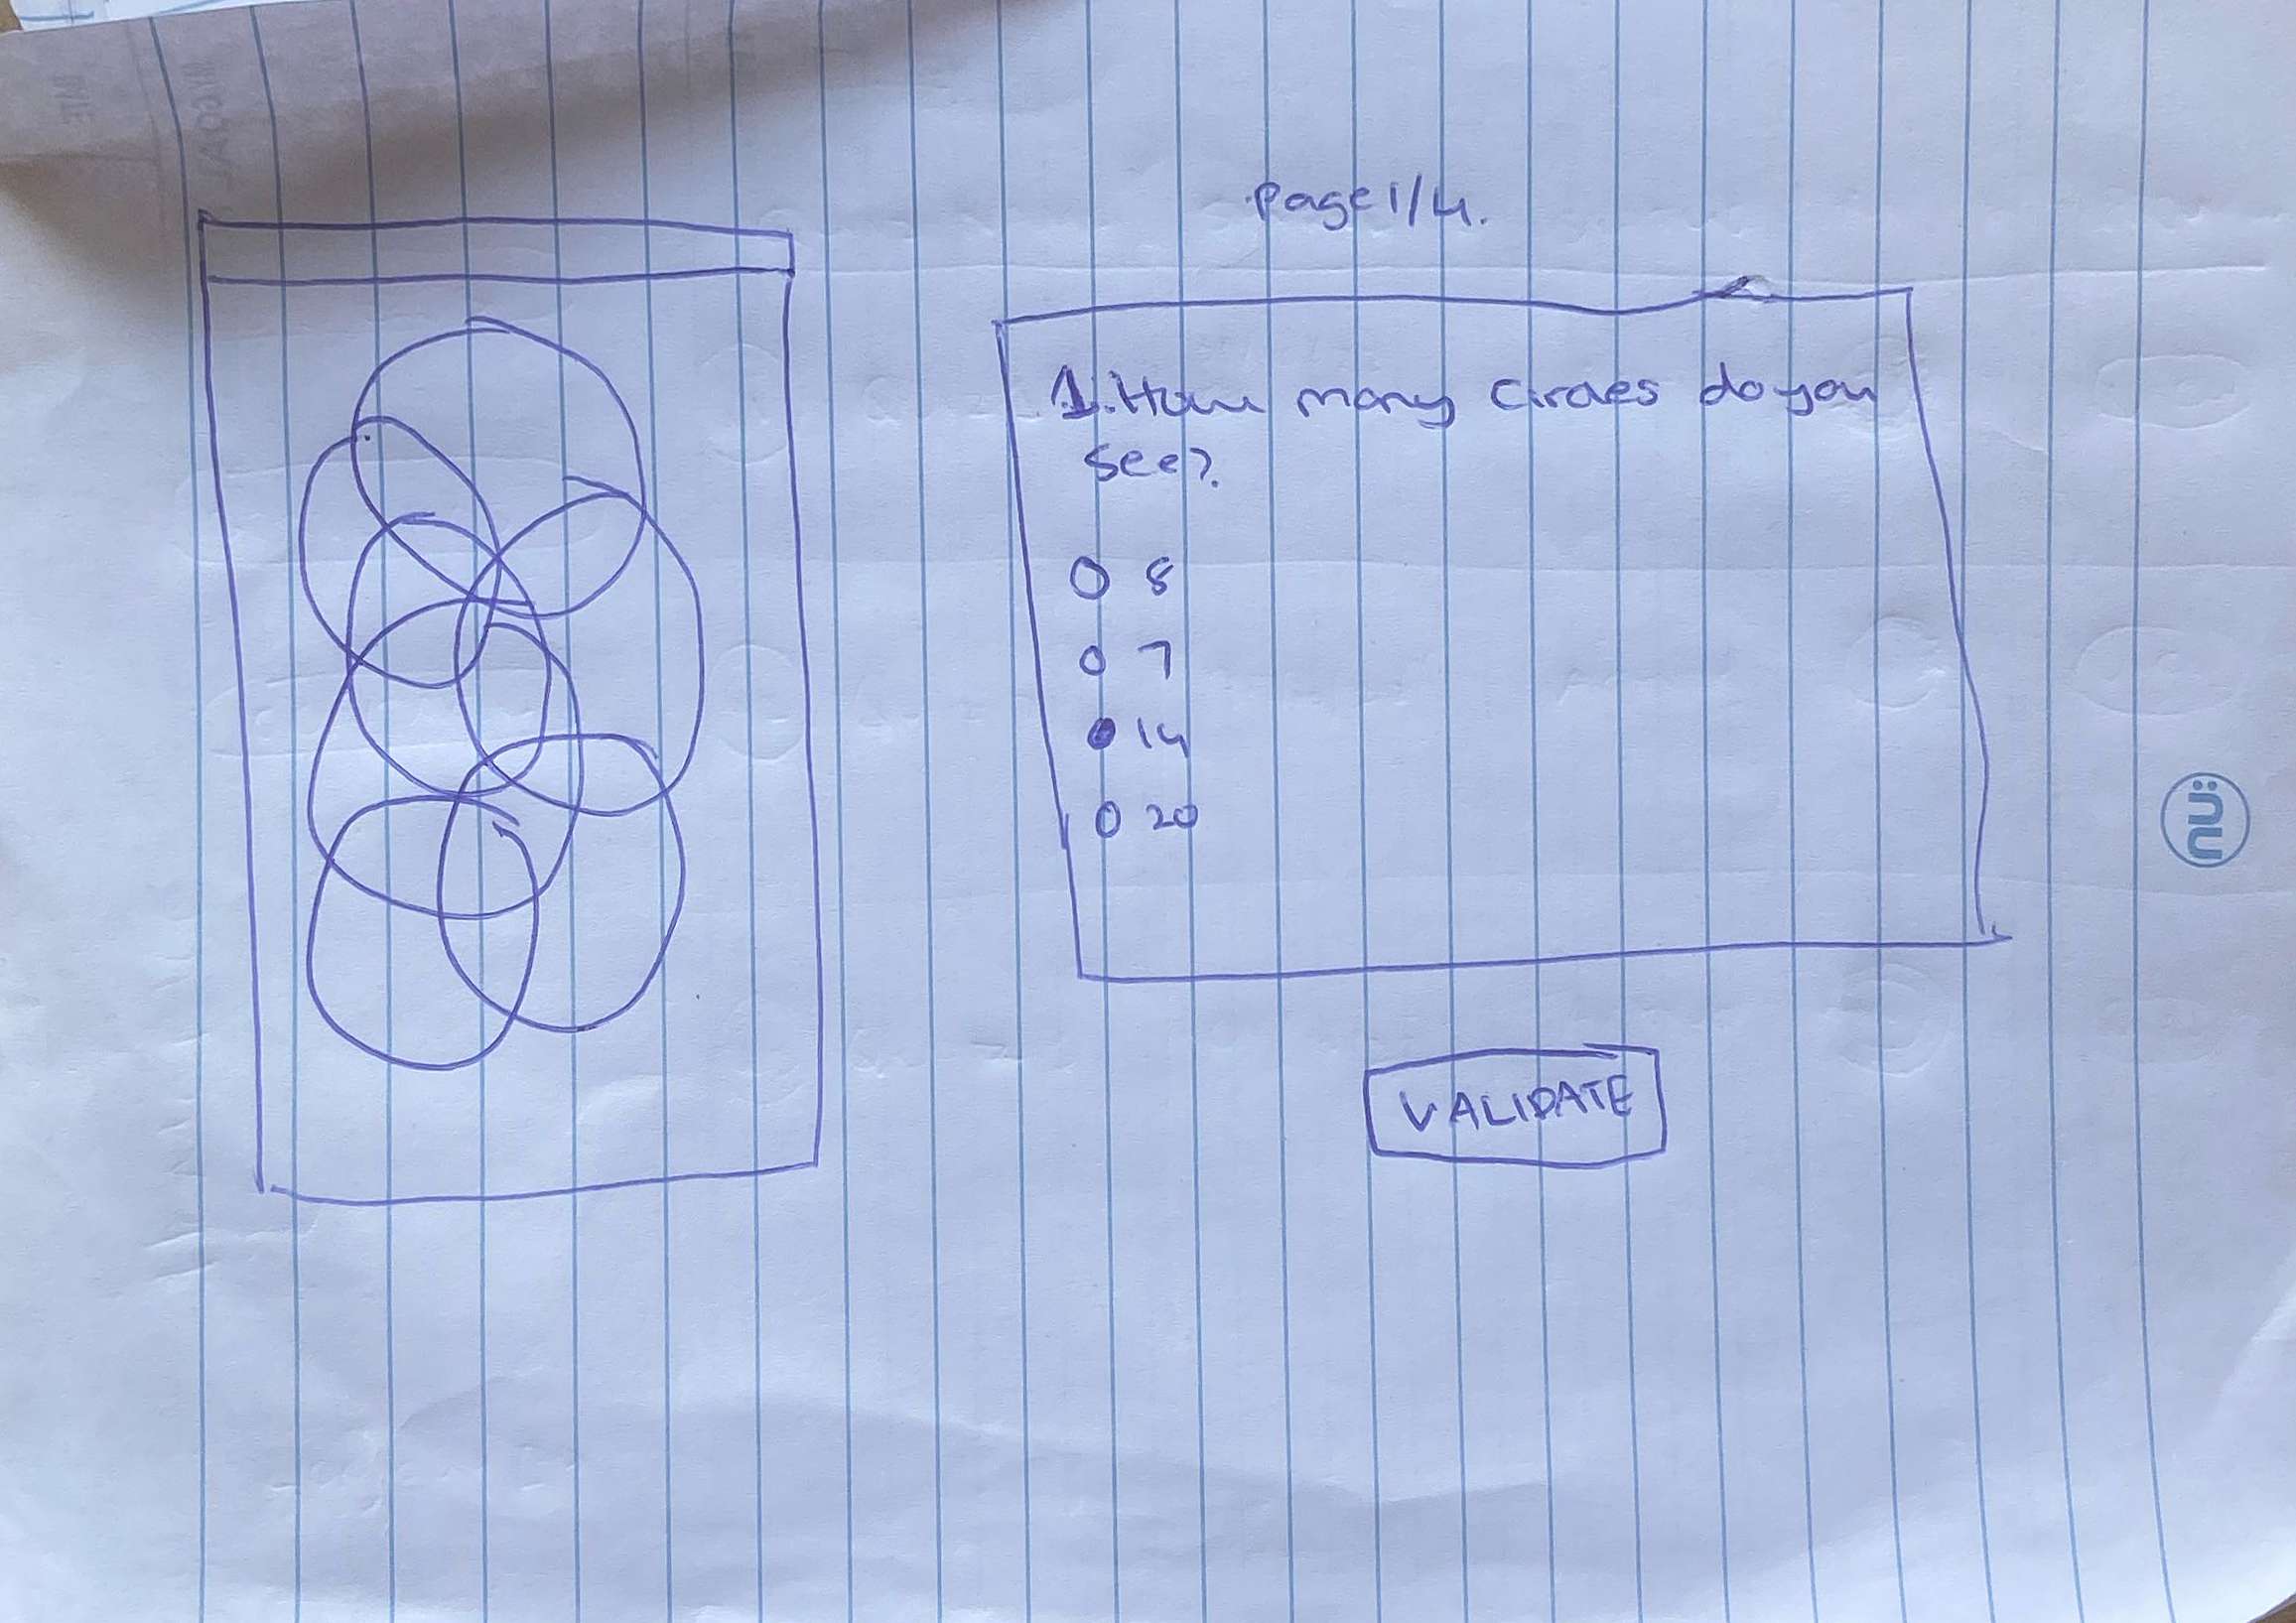 page 1/4.
1. How many circles do you
see?
8
7
14
20
VALIDATE
nü